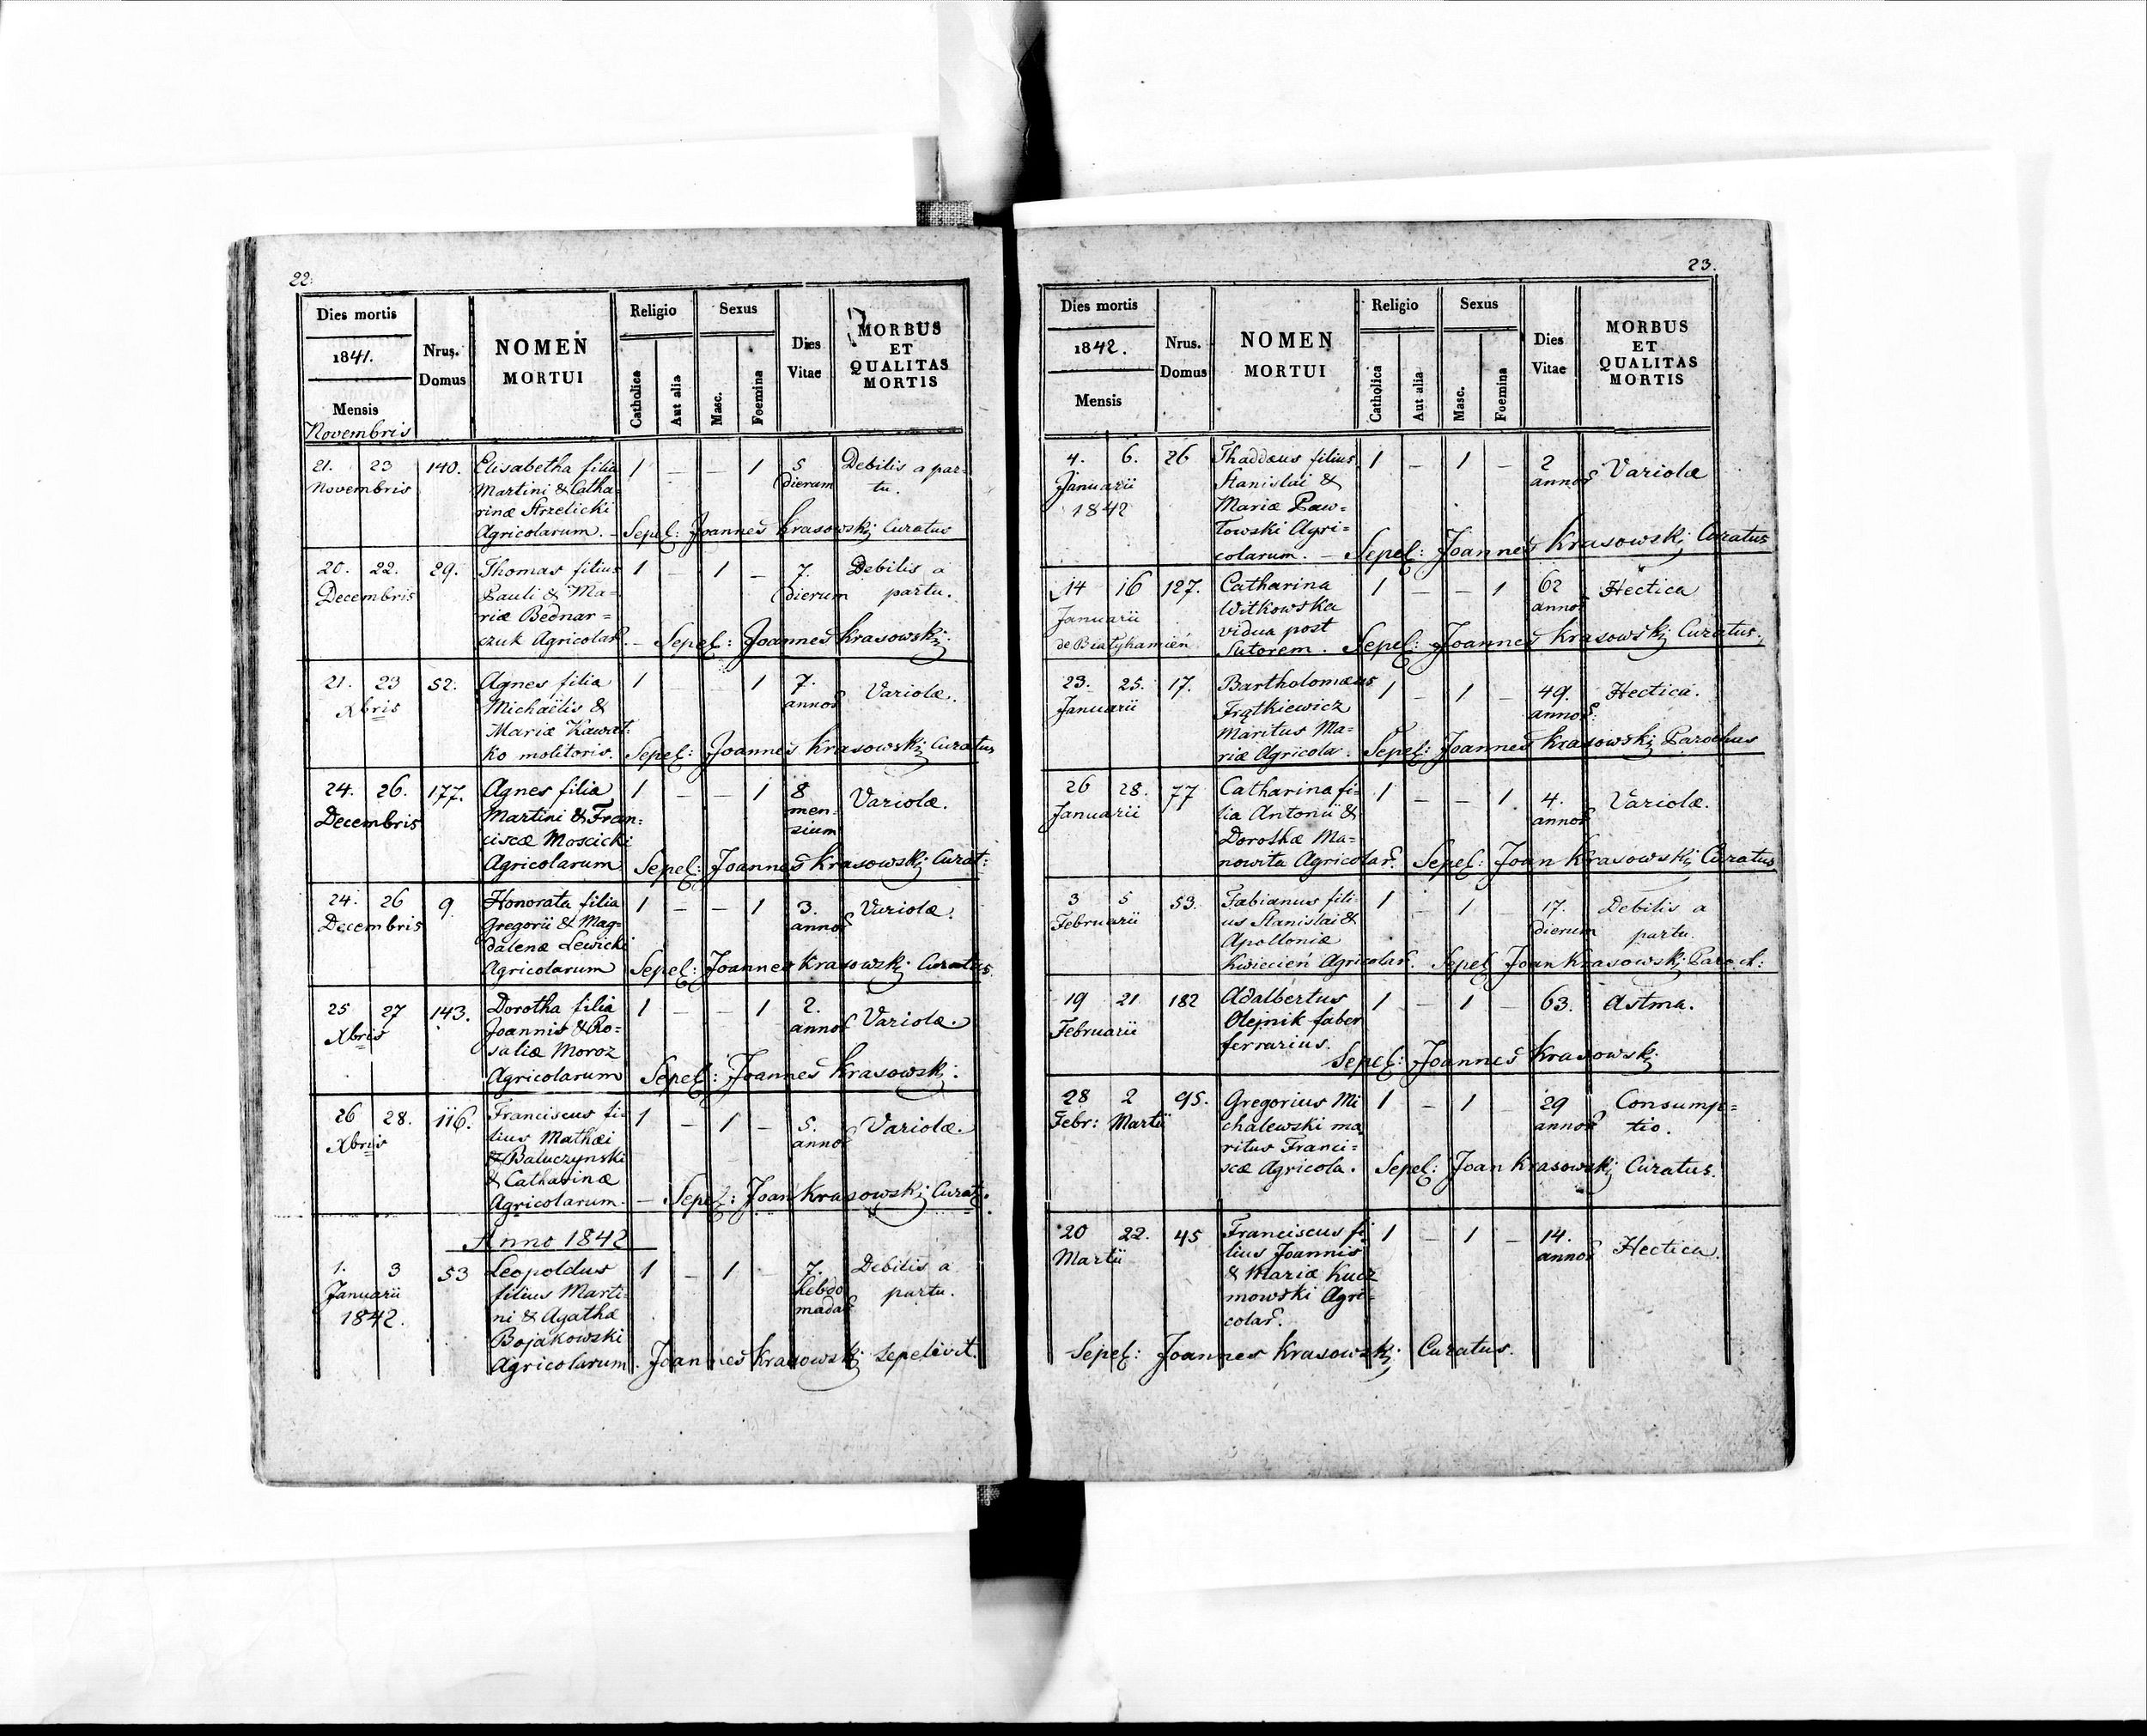 22.
Dies mortis
1841.
Mensis
Novembris
Nrus.
Domus
NOMEN
MORTUI
Religio
Catholica
Aut alia
Sexus
Masc.
Foemina
Dies
Vitae
MORBUS
ET
QUALITAS
MORTIS
21. 23 140. Elisabetha filia 1 — — 1 5 Debilis a par=
Novembris Martini & Catha= dierum tu.
rinæ Strzelicki
Agricolarum. — Sepel: Joannes Krasowski Curatus
20. 22. 29. Thomas filius 1 — 1 — 7. Debilis a
Decembris Pauli & Ma= dierum partu.
riæ Bednar=
czuk Agricolar. — Sepel: Joannes Krasowski
21. 23 52. Agnes filia 1 — — 1 7. Variolæ.
Xbris Michaëlis & annor
Mariæ Kawat=
ko molitoris. Sepel: Joannes Krasowski Curatus
24. 26. 177. Agnes filia 1 — — 1 8 Variolæ.
Decembris Martini & Fran= men=
ciscæ Moscicki sium
Agricolarum Sepel: Joannes Krasowski Curat:
24. 26 9. Honorata filia 1 — — 1 3. Variolæ.
Decembris Gregorii & Mag= annor
dalenæ Lewicki
Agricolarum Sepel: Joannes Krasowski Curatus.
25 27 143. Dorotha filia 1 — — 1 2. Variolæ.
Xbris Joannis & Ro= annor
saliæ Moroz
Agricolarum Sepel: Joannes Krasowski.
26 28. 116. Franciscus fi= 1 — 1 — 5. Variolæ.
Xbris lius Mathæi annor
& Baluczynski
& Catharinæ
Agricolarum. — Sepel: Joan Krasowski Curat.
Anno 1842
1. 3 53 Leopoldus 1 — 1 — 7. Debilis a
Januarii filius Marti= hebdo partu.
1842. ni & Agathæ madar
Bojakowski
Agricolarum. Joannes Krasowski sepelivit.
23.
Dies mortis
1842.
Mensis
Nrus.
Domus
NOMEN
MORTUI
Religio
Catholica
Aut alia
Sexus
Masc.
Foemina
Dies
Vitae
MORBUS
ET
QUALITAS
MORTIS
4. 6. 26 Thaddæus filius 1 — 1 — 2 Variolæ
Januarii Stanislai & annor
1842 Mariæ Paw=
łowski Agri=
colarum. — Sepel: Joannes Krasowski Curatus
14 16 127. Catharina 1 — — 1 62 Hectica
Januarii Witkowska annor
de Białykamień vidua post
Sutorem. Sepel: Joannes Krasowski Curatus.
23. 25. 17. Bartholomæus 1 — 1 — 49. Hectica.
Januarii Frątkiewicz annor.
Maritus Ma=
riæ Agricola. Sepel: Joannes Krasowski Parochus
26 28. 77 Catharina fi= 1 — — 1 4. Variolæ.
Januarii lia Antonii & annor
Dorothæ Ma=
nowita Agricolar. Sepel: Joan Krasowski Curatus
3 5 53. Fabianus fili= 1 — 1 — 17. Debilis a
Februarii us Stanislai & dierum partu.
Apolloniæ
Kwiecień Agricolar. Sepel Joan Krasowski Paroch:
19 21 182 Adalbertus 1 — 1 — 63. Astma.
Februarii Olejnik faber
ferrarius.
Sepel: Joannes Krasowski
28 2 95. Gregorius Mi 1 — 1 — 29 Consump=
Febr: Martii chalewski ma annor tio.
ritus Franci=
scæ Agricola. Sepel: Joan Krasowski Curatus.
20 22. 45 Franciscus fi 1 — 1 — 14. Hectica.
Martii lius Joannis annor
& Mariæ Kucz
mowski Agri=
colar.
Sepel: Joannes Krasowski Curatus.